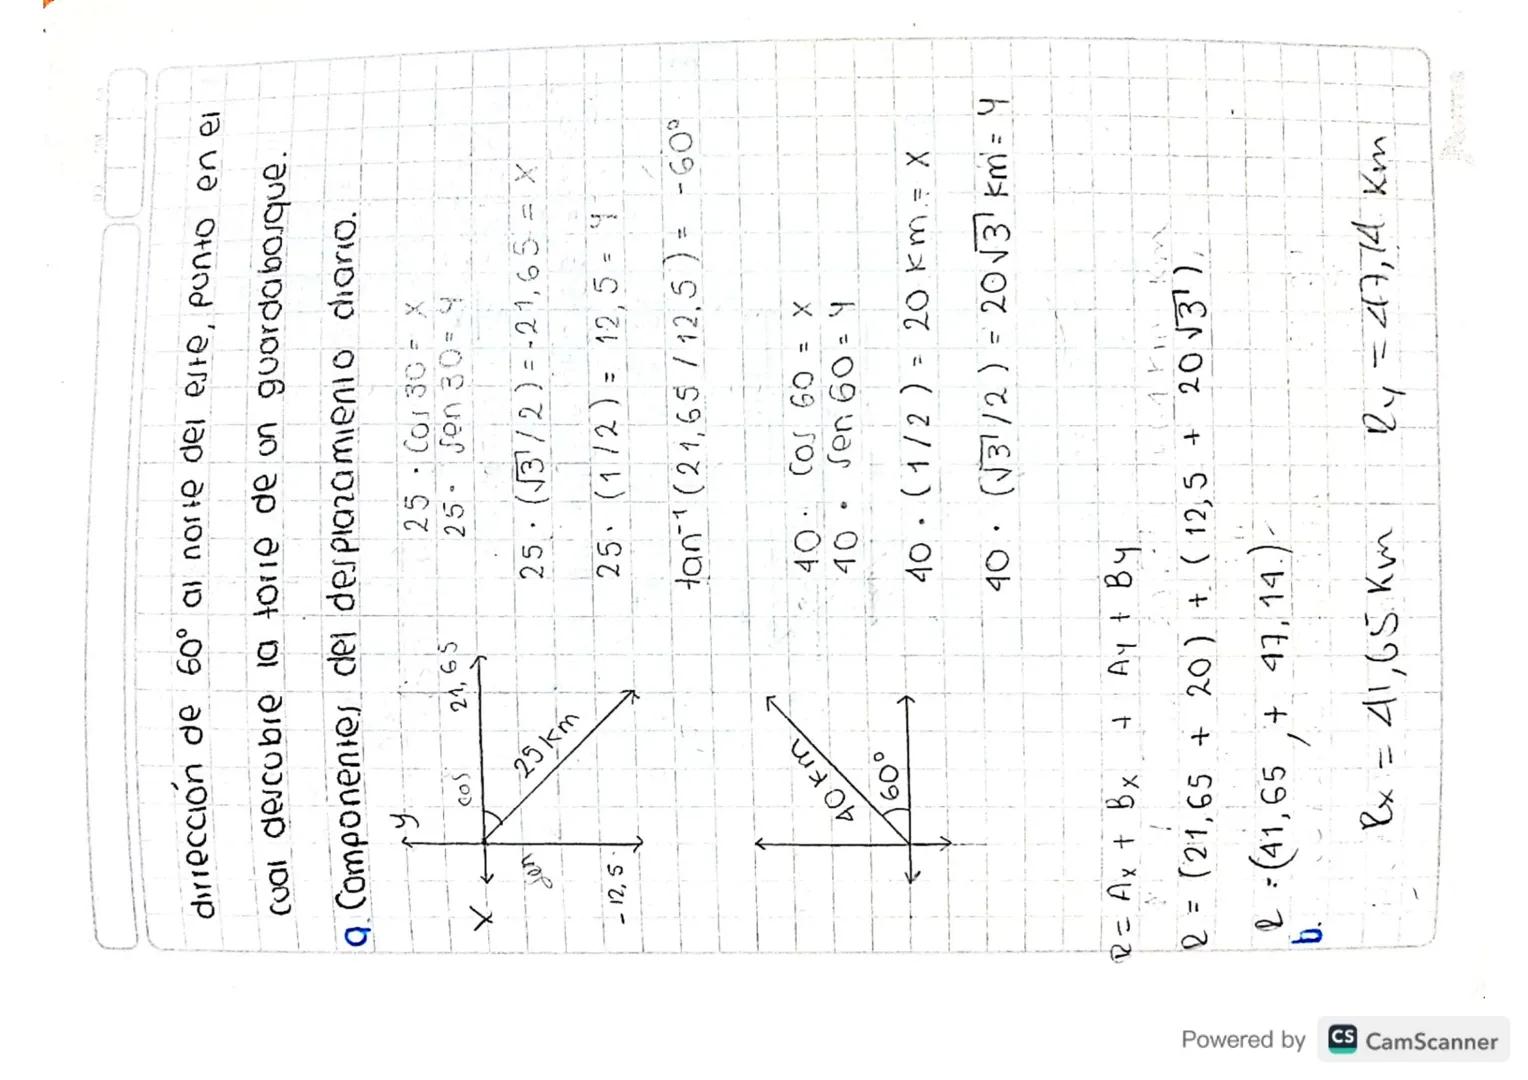 dirrección de 60° al norte del este, punto en el
cual descubre la torre de un guardabosque.
a. Componentes del desplazamiento diario.
y
X
cos
21,65
25 km
sen
-12,5
25 . Cos 30 = X
25 . Sen 30 = y
25 . (√3/2) = -21,65 = X
25 . (1/2) = 12,5 = y
tan⁻¹ (21,65 / 12,5) = -60°
40 km
60°
40 . Cos 60 = X
40 . Sen 60 = y
40 . (1/2) = 20 km = X
40 . (√3/2) = 20√3 km = y
R = Ax + Bx + Ay + By
R = (21,65 + 20) + (12,5 + 20√3)
R = (41,65 , + 47,14)
b.
Rx = 41,65 Km Ry = 47,14 Km
Powered by CS CamScanner